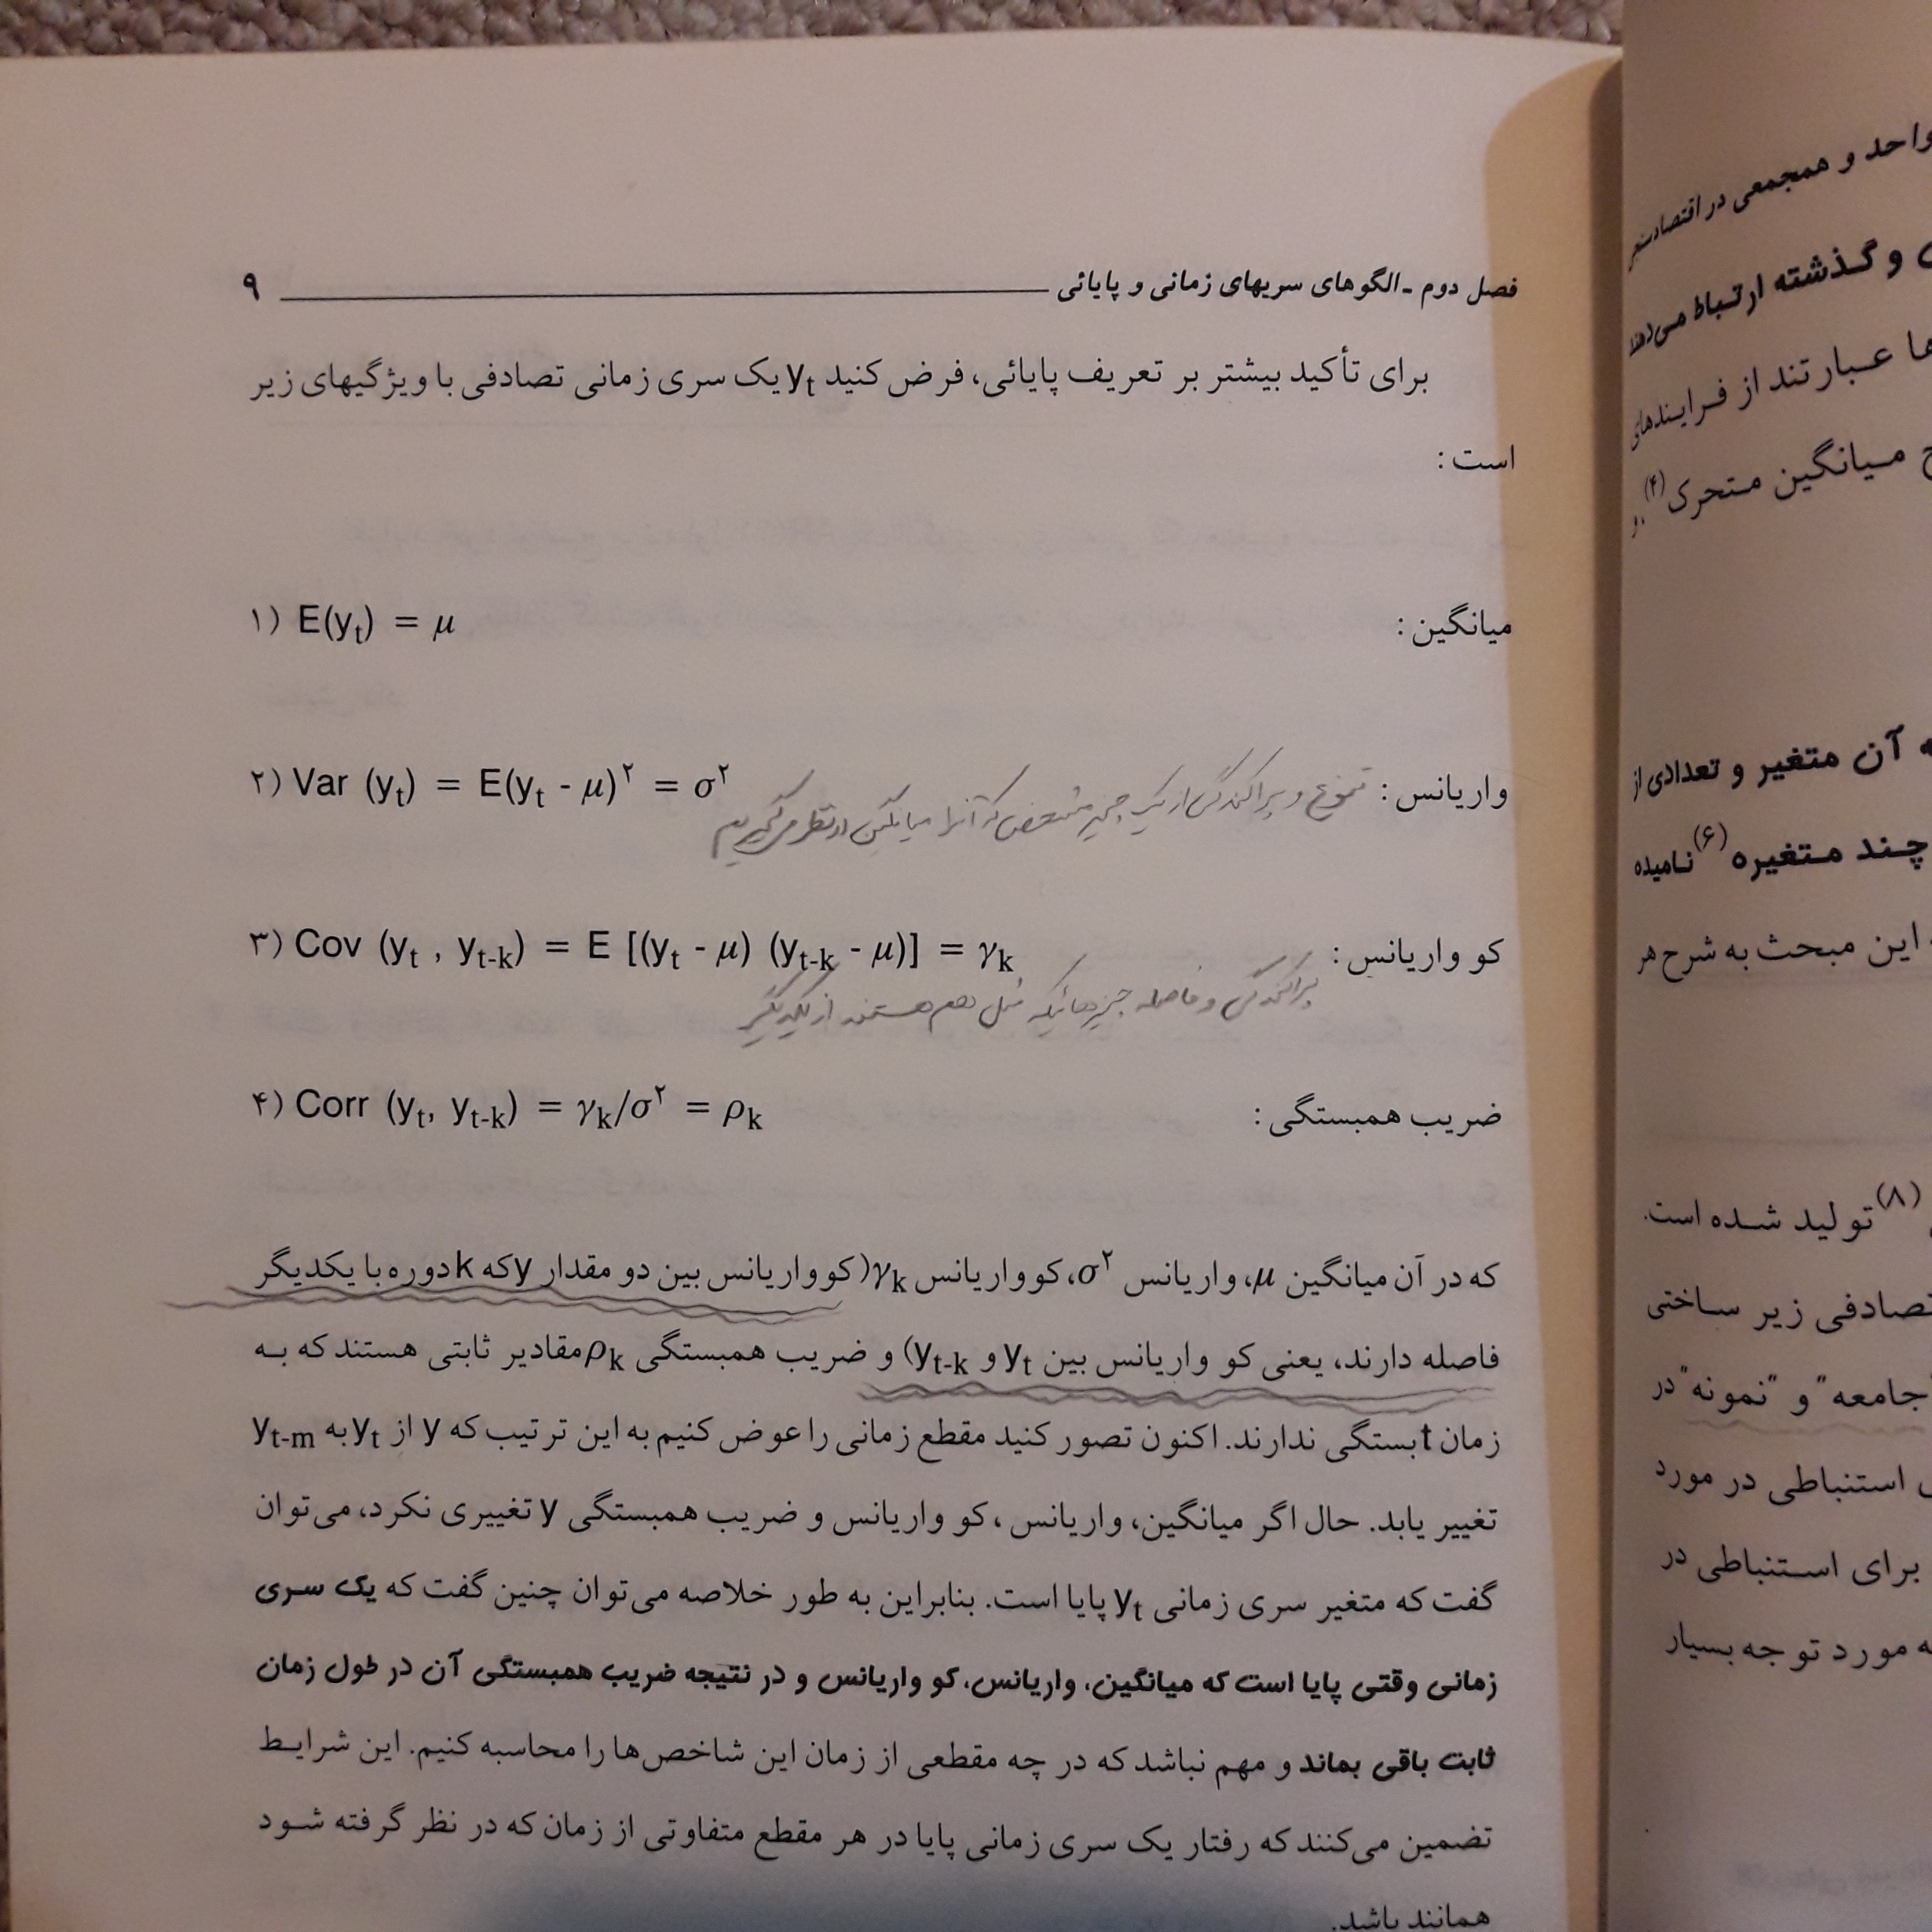 فصل دوم - الگوهای سریهای زمانی و پایائی ۹
برای تأکید بیشتر بر تعریف پایائی، فرض کنید yt یک سری زمانی تصادفی با ویژگیهای زیر
است :
میانگین : ۱) E(yt) = μ
واریانس : ۲) Var (yt) = E(yt - μ)۲ = σ۲
تنوع و پراکندگی از یک چیز مشخص که آنرا میانگین در نظر می‌گیریم
کو واریانس : ۳) Cov (yt , yt-k) = E [(yt - μ) (yt-k - μ)] = γk
پراکندگی و فاصله چیزهائیکه مثل هم هستند از یکدیگر
ضریب همبستگی : ۴) Corr (yt, yt-k) = γk/σ۲ = ρk
که در آن میانگین μ، واریانس σ۲، کوواریانس γk (کوواریانس بین دو مقدار y که k دوره با یکدیگر
فاصله دارند، یعنی کو واریانس بین yt و yt-k) و ضریب همبستگی ρk مقادیر ثابتی هستند که به
زمان t بستگی ندارند. اکنون تصور کنید مقطع زمانی را عوض کنیم به این ترتیب که y از yt به yt-m
تغییر یابد. حال اگر میانگین، واریانس ، کو واریانس و ضریب همبستگی y تغییری نکرد، می‌توان
گفت که متغیر سری زمانی yt پایا است. بنابراین به طور خلاصه می‌توان چنین گفت که یک سری
زمانی وقتی پایا است که میانگین، واریانس، کو واریانس و در نتیجه ضریب همبستگی آن در طول زمان
ثابت باقی بماند و مهم نباشد که در چه مقطعی از زمان این شاخص‌ها را محاسبه کنیم. این شرایط
تضمین می‌کنند که رفتار یک سری زمانی پایا در هر مقطع متفاوتی از زمان که در نظر گرفته شود
همانند باشد.
واحد و همجمعی در اقتصادسنجی
و گذشته ارتباط می‌دهند
عبارتند از فرایندهای
میانگین متحرک(۴)
آن متغیر و تعدادی از
چند متغیره(۶) نامیده
این مبحث به شرح هر
(۸) تولید شده است.
تصادفی زیر ساختی
"جامعه" و "نمونه" در
استنباطی در مورد
برای استنباطی در
مورد توجه بسیار